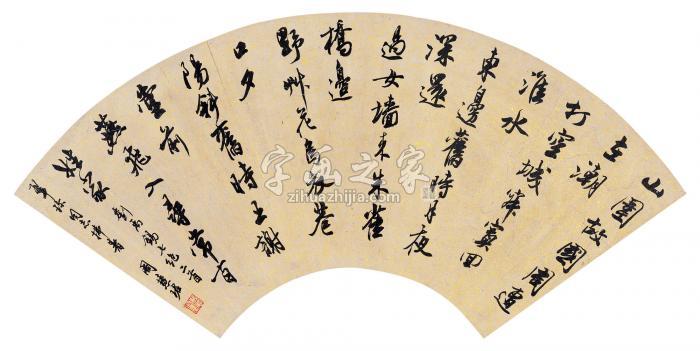 山圍故國周遭
在潮
打空城寂寞回
淮水
東邊舊時月夜
深還
過女墻來朱雀
橋邊
野艸花烏衣巷
口夕
陽斜舊時王謝
堂前
燕飛入尋常百
姓家
劉禹錫七絕二首
同志 周慧珺
字画之家
zihuazhijia.com